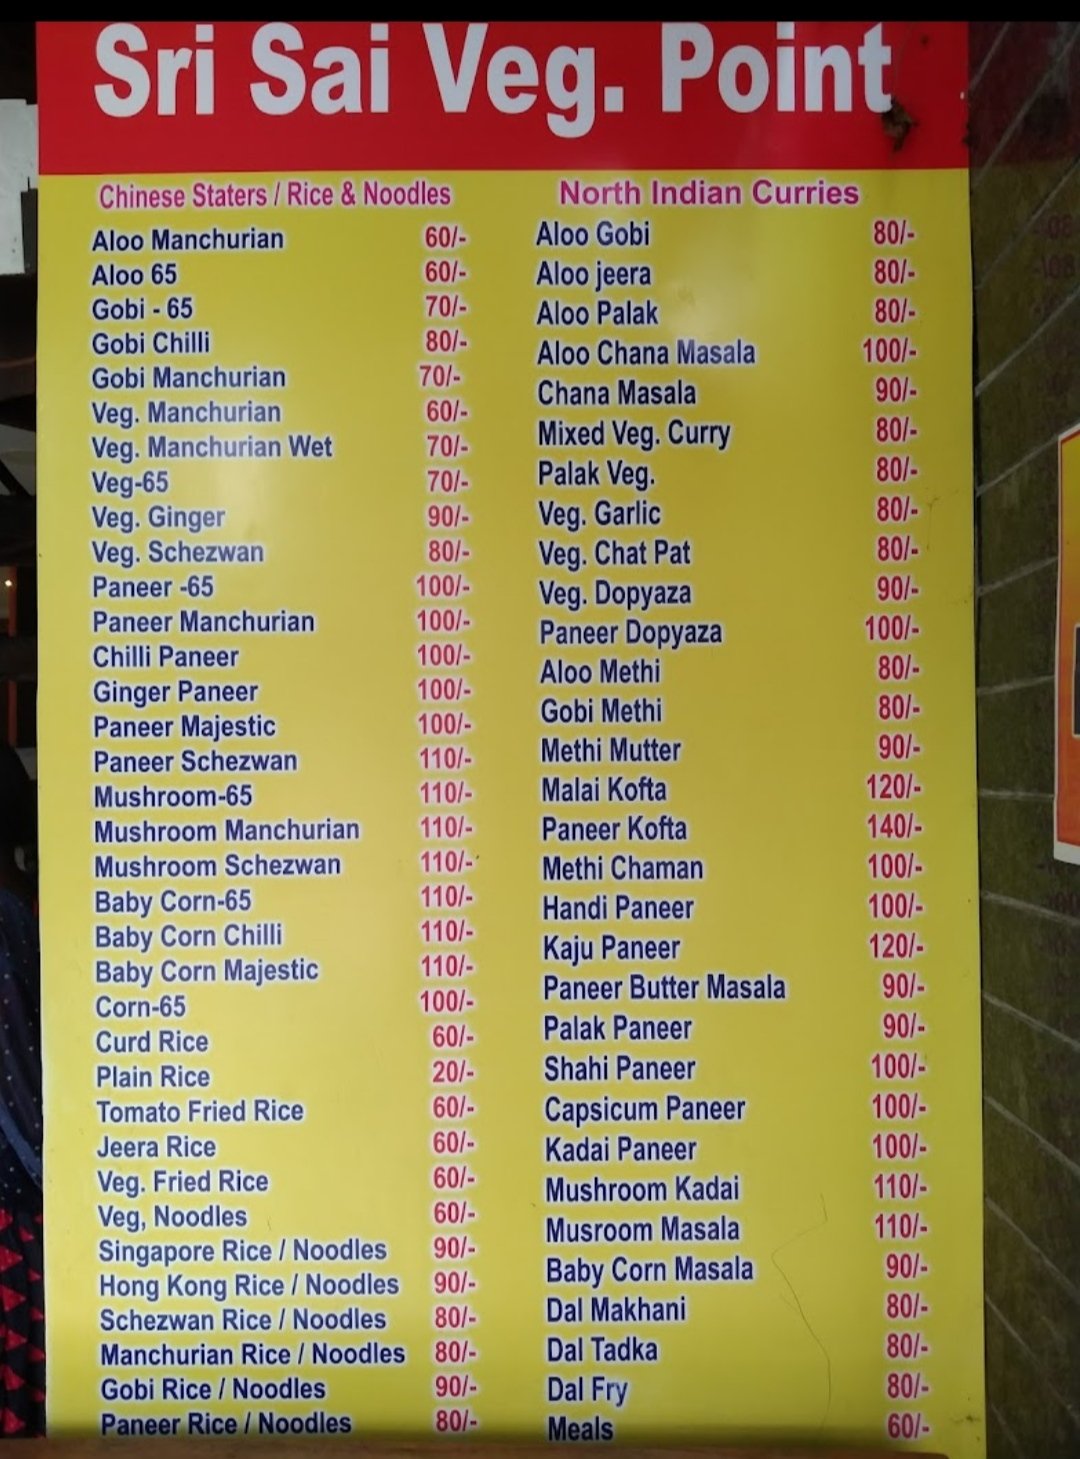 Sri Sai Veg. Point
Chinese Staters / Rice & Noodles
Aloo Manchurian 60/-
Aloo 65 60/-
Gobi - 65 70/-
Gobi Chilli 80/-
Gobi Manchurian 70/-
Veg. Manchurian 60/-
Veg. Manchurian Wet 70/-
Veg-65 70/-
Veg. Ginger 90/-
Veg. Schezwan 80/-
Paneer -65 100/-
Paneer Manchurian 100/-
Chilli Paneer 100/-
Ginger Paneer 100/-
Paneer Majestic 100/-
Paneer Schezwan 110/-
Mushroom-65 110/-
Mushroom Manchurian 110/-
Mushroom Schezwan 110/-
Baby Corn-65 110/-
Baby Corn Chilli 110/-
Baby Corn Majestic 110/-
Corn-65 100/-
Curd Rice 60/-
Plain Rice 20/-
Tomato Fried Rice 60/-
Jeera Rice 60/-
Veg. Fried Rice 60/-
Veg, Noodles 60/-
Singapore Rice / Noodles 90/-
Hong Kong Rice / Noodles 90/-
Schezwan Rice / Noodles 80/-
Manchurian Rice / Noodles 80/-
Gobi Rice / Noodles 90/-
Paneer Rice / Noodles 80/-
North Indian Curries
Aloo Gobi 80/-
Aloo jeera 80/-
Aloo Palak 80/-
Aloo Chana Masala 100/-
Chana Masala 90/-
Mixed Veg. Curry 80/-
Palak Veg. 80/-
Veg. Garlic 80/-
Veg. Chat Pat 80/-
Veg. Dopyaza 90/-
Paneer Dopyaza 100/-
Aloo Methi 80/-
Gobi Methi 80/-
Methi Mutter 90/-
Malai Kofta 120/-
Paneer Kofta 140/-
Methi Chaman 100/-
Handi Paneer 100/-
Kaju Paneer 120/-
Paneer Butter Masala 90/-
Palak Paneer 90/-
Shahi Paneer 100/-
Capsicum Paneer 100/-
Kadai Paneer 100/-
Mushroom Kadai 110/-
Musroom Masala 110/-
Baby Corn Masala 90/-
Dal Makhani 80/-
Dal Tadka 80/-
Dal Fry 80/-
Meals 60/-